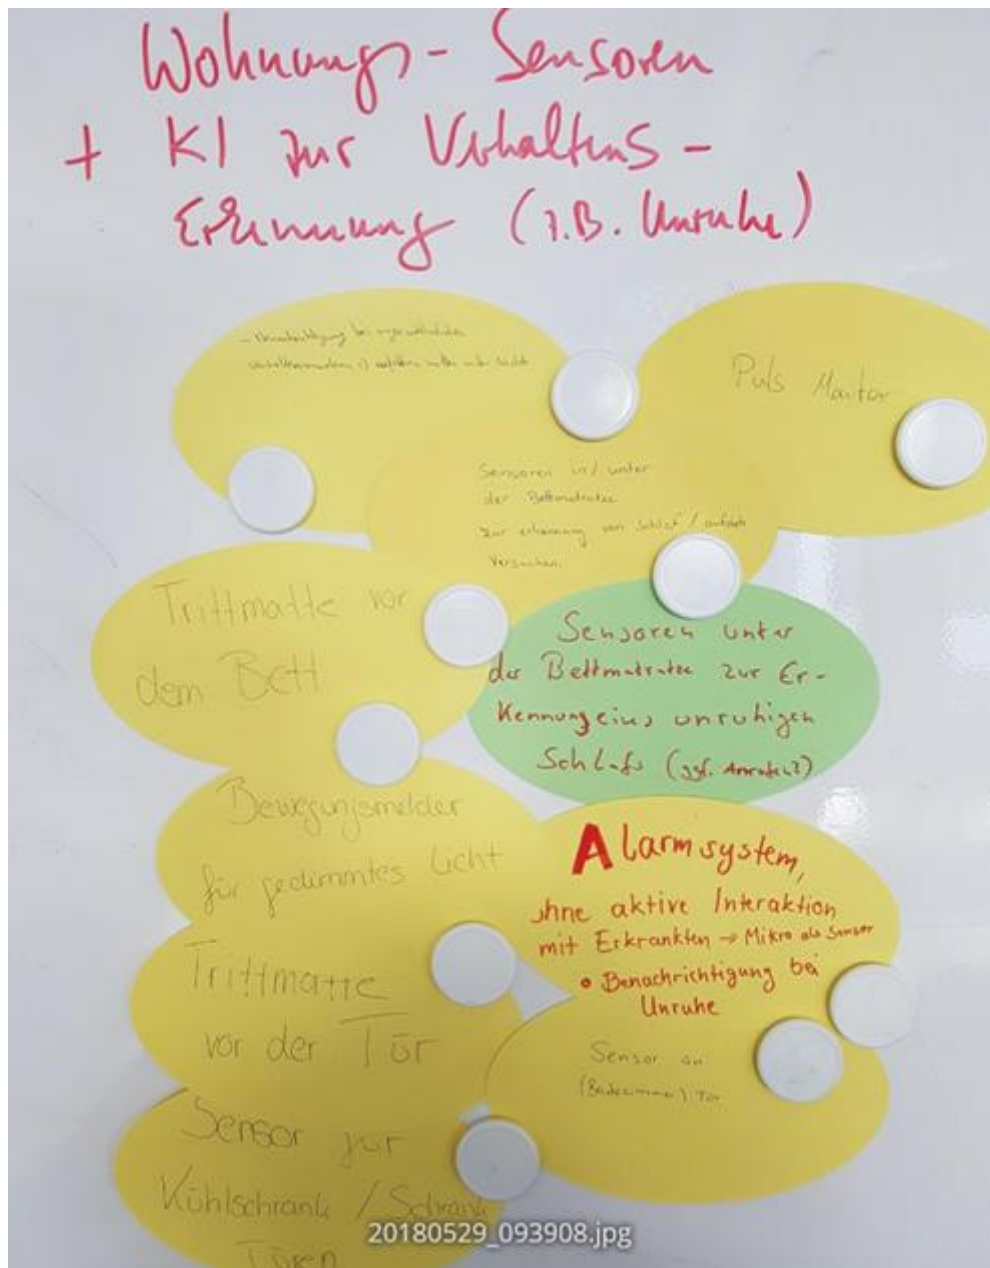 Wohnungs - Sensoren
+ KI zur Verhaltens -
Erkennung (z.B. Unruhe)
- Benachrichtigung bei
Puls Monitor
Sensoren in / unter
der Bettmatratze
zur erkennung von Schlaf / aufsteh
Versuchen.
Trittmatte vor
dem Bett
Sensoren unter
der Bettmatratze zur Er-
Kennung eines unruhigen
Schlafs (ggf. Anrufen?)
Bewegungsmelder
für gedimmtes Licht
Alarmsystem,
ohne aktive Interaktion
mit Erkrankten → Mikro als Sensor
• Benachrichtigung bei
Unruhe
Trittmatte
vor der Tür
Sensor an
(Badezimmer) Tür
Sensor zur
Kühlschrank / Schrank
Türen
20180529_093908.jpg